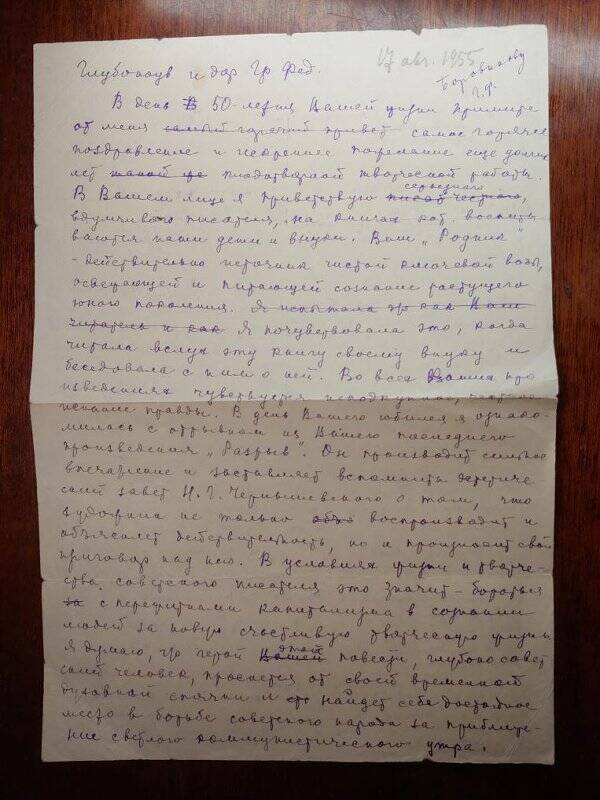 17 авг. 1955
Боровикову
Г.Ф.
Глубокоув и дор Гр Фед.
В день В 50-летия Вашей жизни примите
от меня самый горячий привет самое горячее
поздравление и искреннее пожелание еще долгих
лет такой же плодотворной творческой работы.
серьезного
В Вашем лице я приветствую честного,
вдумчивого писателя, на книгах кот. воспиты
ваются наши дети и внуки. Ваш „Родник"
- действительно источник чистой ключевой воды,
освещающей и питающей сознание растущего
юного поколения. Я испытала это как Ваш
читатель и как Я почувствовала это, когда
читала вслух эту книгу своему внуку и
беседовала с ним о ней. Во всех Ваших про
изведениях чувствуется неподкупное, честное
искание правды. В день Вашего юбилея я ознако-
милась с отрывком из Вашего последнего
произведения „Разрыв". Он производит сильное
впечатление и заставляет вспомнить
ский завет Н. Г. Чернышевского о том, что
художник не только объя воспроизводит и
объясняет действительность, но и произносит свой
приговор над нею. В условиях жизни и творче-
ства советского писателя это значит - бороться
за с пережитками капитализма в сознании
людей за новую счастливую творческую жизнь.
этой
Я думаю, что герой Вашей повести, глубоко совет
ский человек, проснется от своей временной
духовной спячки и найдет себе достойное
место в борьбе советского народа за приближе-
ние светлого коммунистического утра.